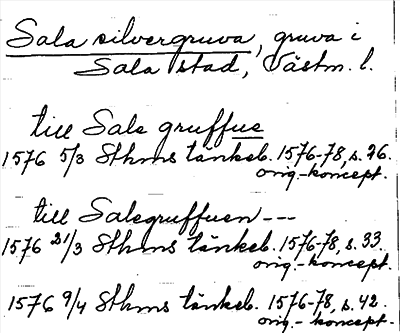 Sala silvergruva, gruva i
Sala stad, Västm. l.
till Sale gruffue
1576 5/3 Sthms tänkeb. 1576-78, s. 26.
orig.-koncept.
till Salegruffuen ---
1576 21/3 Sthms tänkeb. 1576-78, s. 33.
orig.-koncept.
1576 9/4 Sthms tänkeb. 1576-78, s. 42.
orig.-koncept.